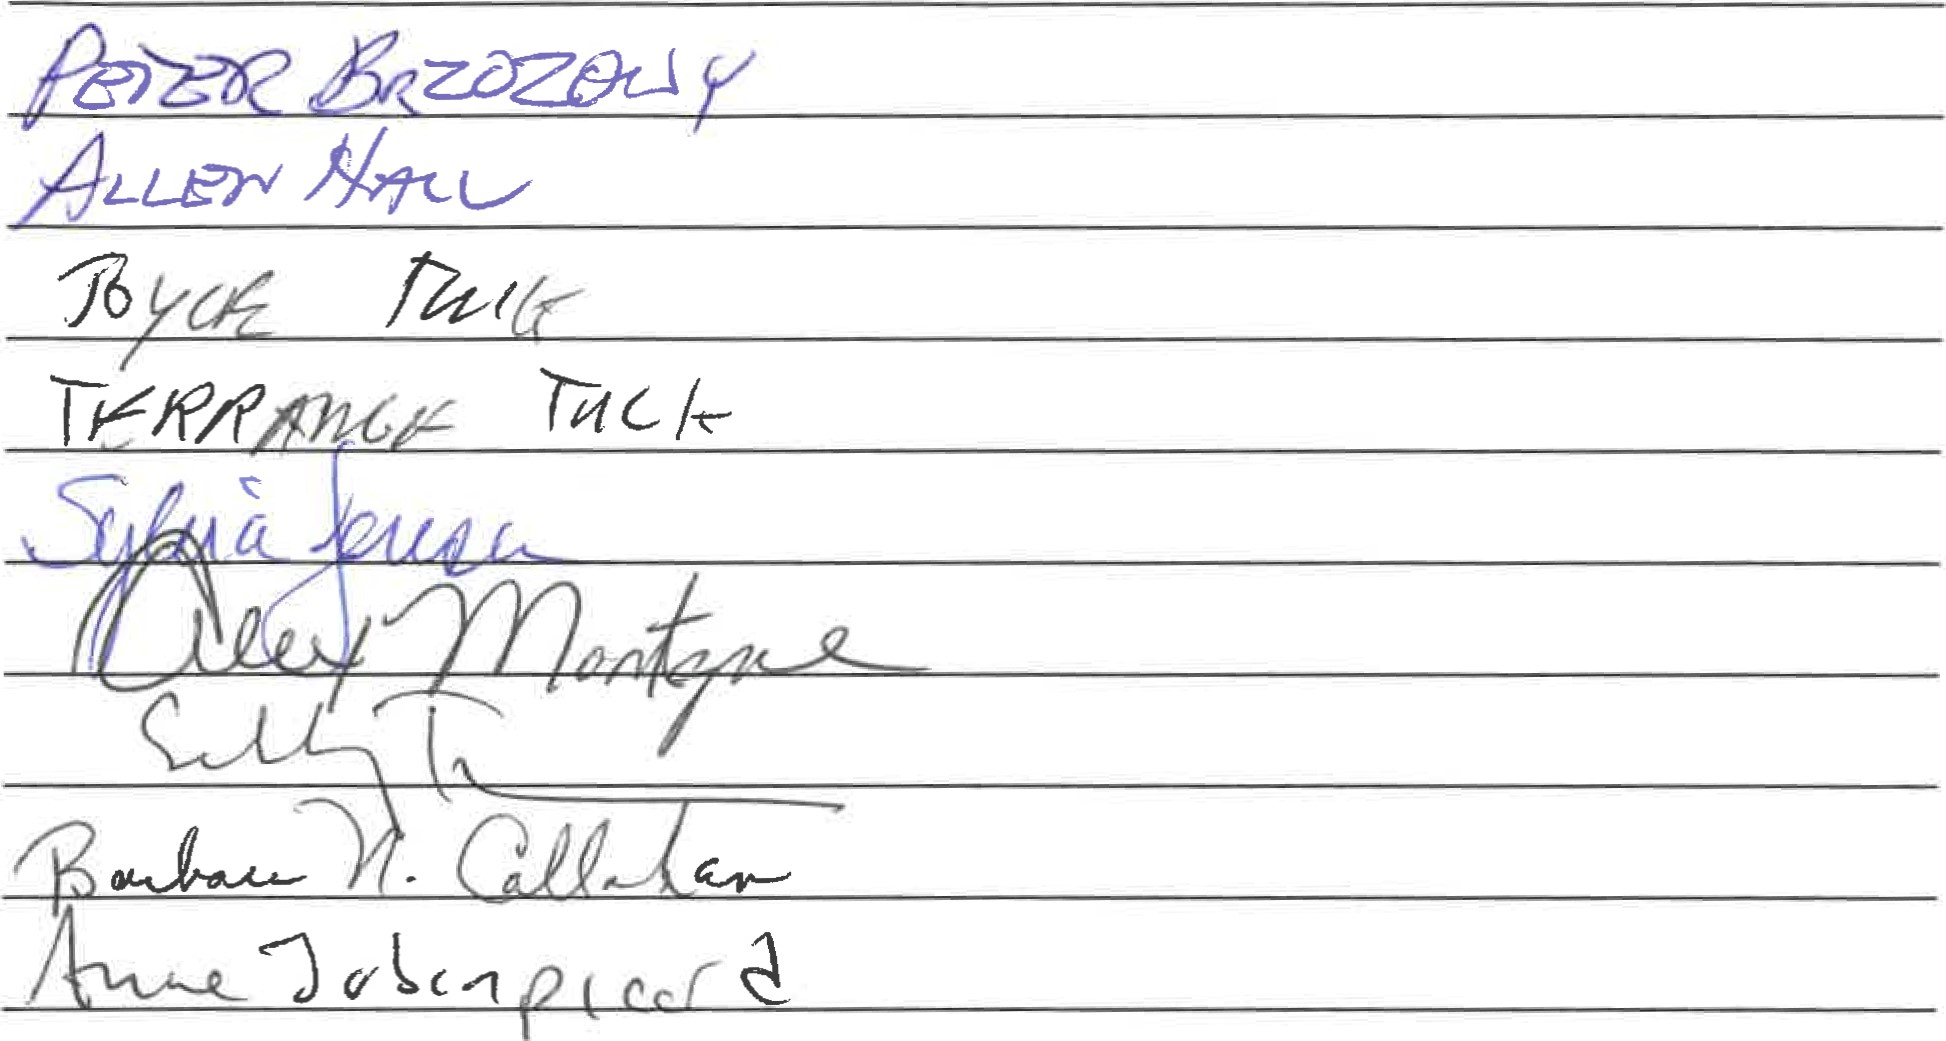 PETER BRZOZOWY
ALLEN HALL
JOYCE TUCK
TERRANCE TUCK
Sylvia Jensen
Alex Montagne
Barbara N. Callahan
Anne Tobenpicard